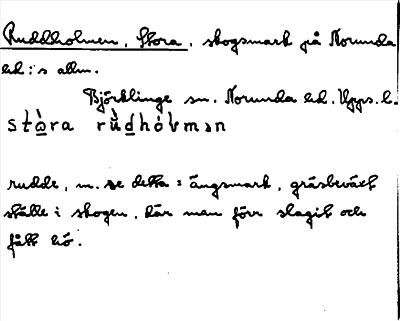 Ruddholmen, Stora, skogsmark på Norunda
hd:s allm.
Björklinge sn. Norunda hd. Upps. l.
stò̱ra rù̆d̲hóḷmən
rudde, m. se detta = ängsmark, gräsbeväxt
ställe i skogen, där man förr slagit och
fått hö.